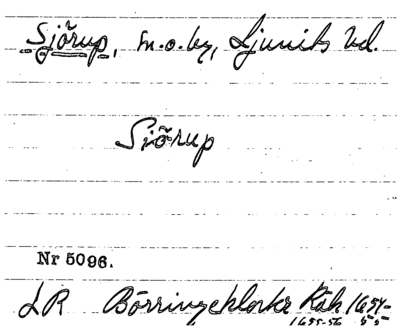 Sjörup, sn. o. by, Ljunits hd.
Sjörup
Nr 5096.
LR Börringeklosters Räk 1654-
1655-56 55